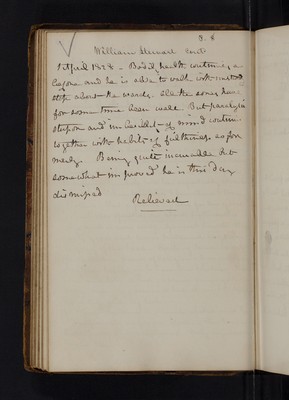 William Stewart Cont'd
1 April 1828 – Bodily health continues as
before and he is able to walk with unsteady
step about the wards. All the sores have
for some time been well. But paralysis
stupor and imbecility of mind continue
together with habits of filthiness as for-
merly. Being quite incurable but
somewhat improved he is this day
dismissed
Relieved